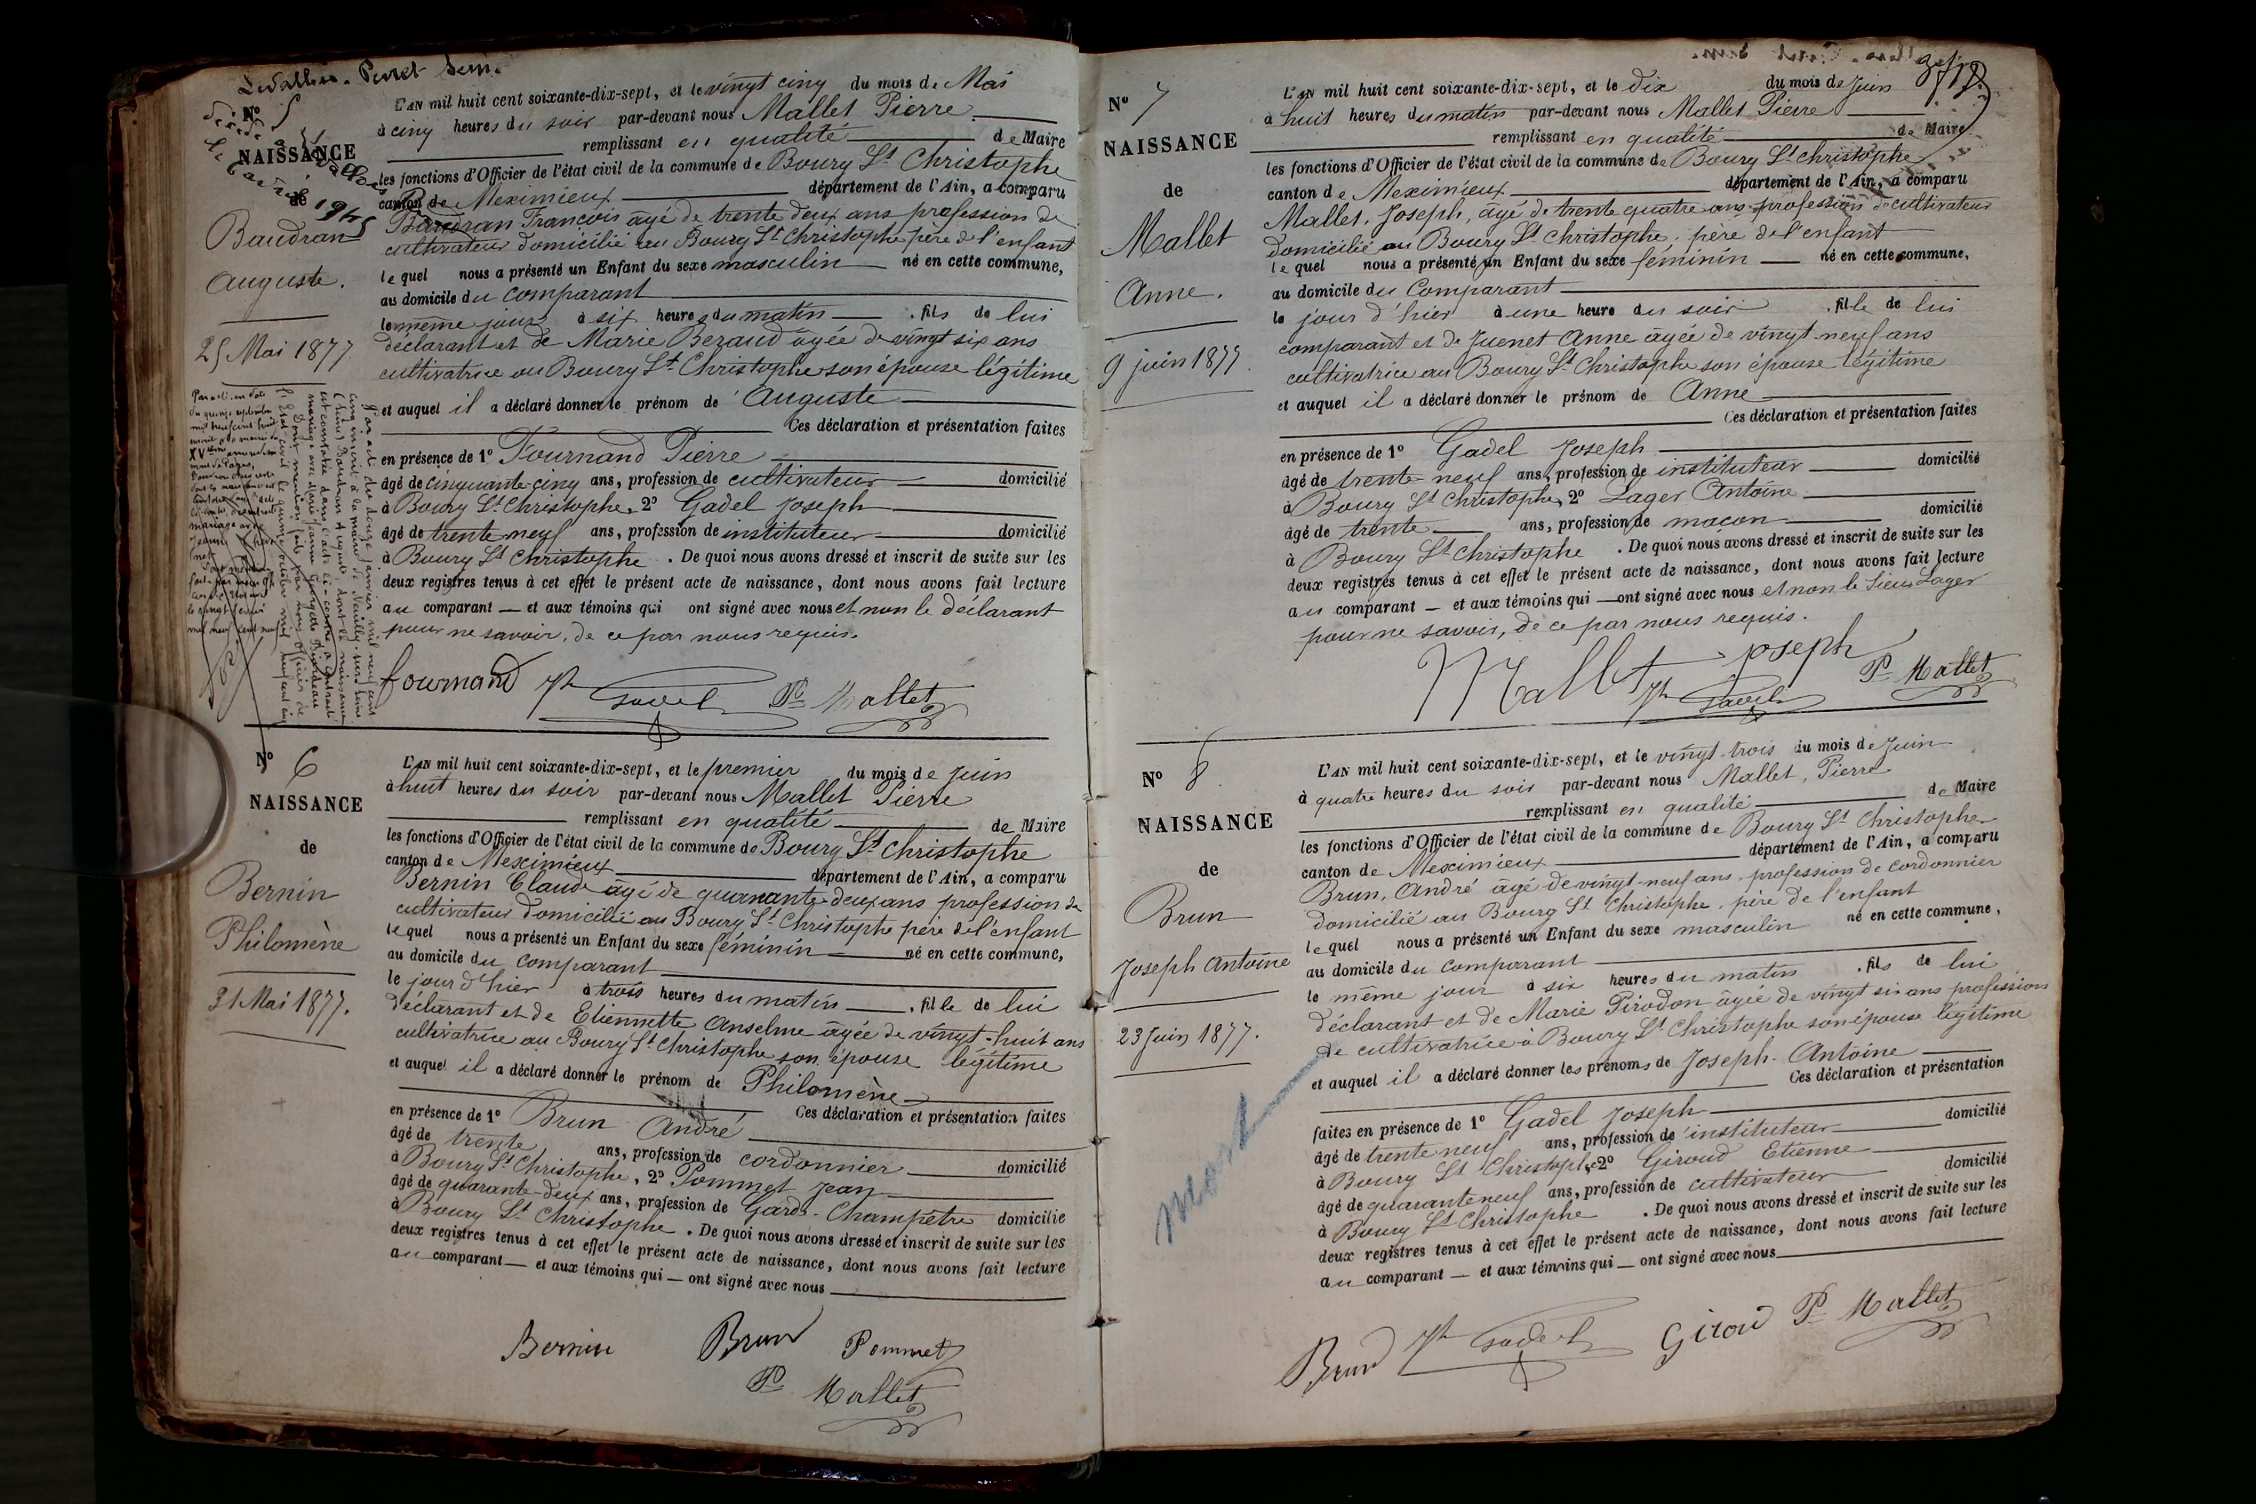 Levallois-Perret Seine.
N° 5
NAISSANCE
de
Baudran
Auguste.
25 Mai 1877
L'AN mil huit cent soixante-dix-sept, et le vingt cinq du mois de Mai
à cinq heures du soir par-devant nous Mallet Pierre
remplissant en qualité de Maire
les fonctions d'Officier de l'état civil de la commune de Bourg St Christophe
canton de Meximieux département de l'Ain, a comparu
Baudran François âgé de trente deux ans profession de
cultivateur domicilié au Bourg St Christophe père de l'enfant
lequel nous a présenté un Enfant du sexe masculin né en cette commune,
au domicile du comparant
le même jour à six heures du matin . fils de lui
déclarant et de Marie Beraud âgée de vingt six ans
cultivatrice au Bourg St Christophe son épouse légitime
et auquel il a déclaré donner le prénom de Auguste
Ces déclaration et présentation faites
en présence de 1° Fournand Pierre
âgé de cinquante-cinq ans, profession de cultivateur domicilié
à Bourg St Christophe, 2° Gadel Joseph
âgé de trente neuf ans, profession de instituteur domicilié
à Bourg St Christophe . De quoi nous avons dressé et inscrit de suite sur les
deux registres tenus à cet effet le présent acte de naissance, dont nous avons fait lecture
au comparant — et aux témoins qui ont signé avec nous et non le déclarant
pour ne savoir, de ce par nous requis.
fournand Jh Gadel P. Mallet
N° 6
NAISSANCE
de
Bernin
Philomène
31 Mai 1877.
L'AN mil huit cent soixante-dix-sept, et le premier du mois de Juin
à huit heures du soir par-devant nous Mallet Pierre
remplissant en qualité de Maire
les fonctions d'Officier de l'état civil de la commune de Bourg St Christophe
canton de Meximieux département de l'Ain, a comparu
Bernin Claude âgé de quarante-deux ans profession de
cultivateur domicilié au Bourg St Christophe père de l'enfant
lequel nous a présenté un Enfant du sexe féminin né en cette commune,
au domicile du comparant
le jour d'hier à trois heures du matin . fille de lui
déclarant et de Etiennette Anselme âgée de vingt-huit ans
cultivatrice au Bourg St Christophe son épouse légitime
et auquel il a déclaré donner le prénom de Philomène
Ces déclaration et présentation faites
en présence de 1° Brun André
âgé de trente ans, profession de cordonnier domicilié
à Bourg St Christophe, 2° Pommet Jean
âgé de quarante-deux ans, profession de Garde-Champêtre domicilié
à Bourg St Christophe . De quoi nous avons dressé et inscrit de suite sur les
deux registres tenus à cet effet le présent acte de naissance, dont nous avons fait lecture
au comparant — et aux témoins qui — ont signé avec nous
Bernin Brun Pommet
P. Mallet
N° 7
NAISSANCE
de
Mallet
Anne.
9 juin 1877.
L'AN mil huit cent soixante-dix-sept, et le dix du mois de Juin
à huit heures du matin par-devant nous Mallet Pierre
remplissant en qualité de Maire
les fonctions d'Officier de l'état civil de la commune de Bourg St Christophe
canton de Meximieux département de l'Ain, a comparu
Mallet, Joseph, âgé de trente quatre ans profession de cultivateur
domicilié au Bourg St Christophe, père de l'enfant
lequel nous a présenté un Enfant du sexe féminin né en cette commune,
au domicile du Comparant
le jour d'hier à une heure du soir . fille de lui
comparant et de Juenet Anne âgée de vingt-neuf ans
cultivatrice au Bourg St Christophe son épouse légitime
et auquel il a déclaré donner le prénom de Anne
Ces déclaration et présentation faites
en présence de 1° Gadel Joseph
âgé de trente-neuf ans, profession de instituteur domicilié
à Bourg St Christophe, 2° Lager Antoine
âgé de trente ans, profession de maçon domicilié
à Bourg St Christophe . De quoi nous avons dressé et inscrit de suite sur les
deux registres tenus à cet effet le présent acte de naissance, dont nous avons fait lecture
au comparant — et aux témoins qui — ont signé avec nous et non le Sieur Lager
pour ne savoir, de ce par nous requis.
Mallet Joseph
Jh Gadel P. Mallet
N° 8
NAISSANCE
de
Brun
Joseph Antoine
23 Juin 1877.
mort
L'AN mil huit cent soixante-dix-sept, et le vingt-trois du mois de Juin
à quatre heures du soir par-devant nous Mallet, Pierre
remplissant en qualité de Maire
les fonctions d'Officier de l'état civil de la commune de Bourg St Christophe
canton de Meximieux département de l'Ain, a comparu
Brun, André âgé de vingt-neuf ans profession de cordonnier
domicilié au Bourg St Christophe, père de l'enfant
lequel nous a présenté un Enfant du sexe masculin né en cette commune,
au domicile du comparant
le même jour à six heures du matin . fils de lui
déclarant et de Marie Pirodon âgée de vingt six ans profession
de cultivatrice à Bourg St Christophe son épouse légitime
et auquel il a déclaré donner les prénoms de Joseph-Antoine
Ces déclaration et présentation
faites en présence de 1° Gadel Joseph
âgé de trente neuf ans, profession de instituteur domicilié
à Bourg St Christophe 2° Giroud Etienne
âgé de quarante neuf ans, profession de cultivateur domicilié
à Bourg St Christophe . De quoi nous avons dressé et inscrit de suite sur les
deux registres tenus à cet effet le présent acte de naissance, dont nous avons fait lecture
au comparant — et aux témoins qui — ont signé avec nous
Brun Jh Gadel Giroud P. Mallet